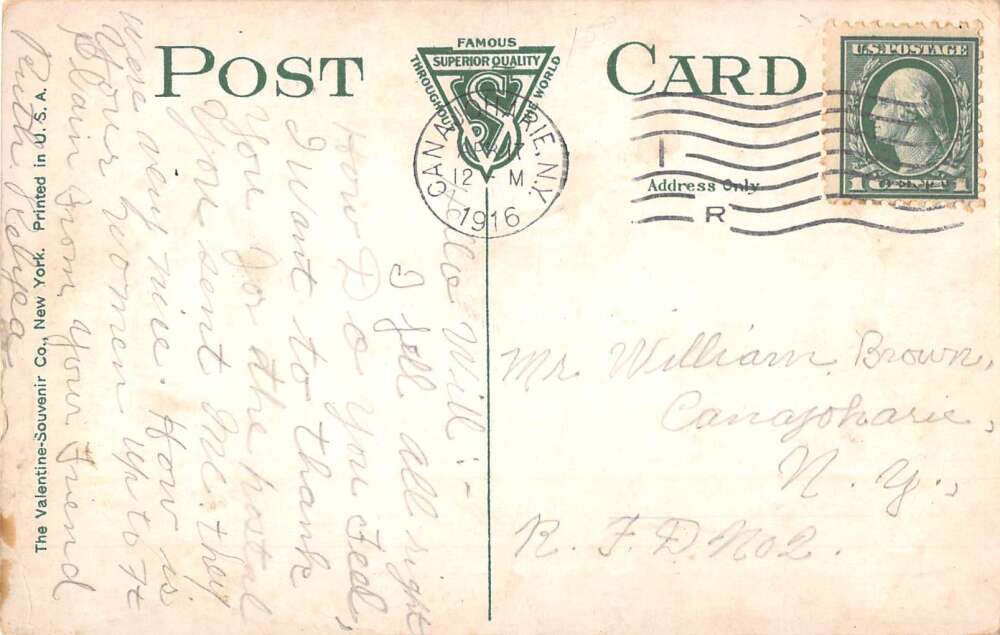 POST CARD
FAMOUS
SUPERIOR QUALITY
THROUGHOUT THE WORLD
VS
CANAJOHARIE, N.Y.
12 M
1916
R
U.S. POSTAGE
1 1
Address Only
The Valentine-Souvenir Co., New York. Printed in U. S. A.
Hello Will:-
I fell all right
How Do you feel,
I want to thank
You for the postal
You sent me. they
were very nice. How is
Your women up to Ft
Plain From, Your Friend
Ruth
Mr. William Brown,
Canajoharie,
N. Y.,
R. F. D. No 2.